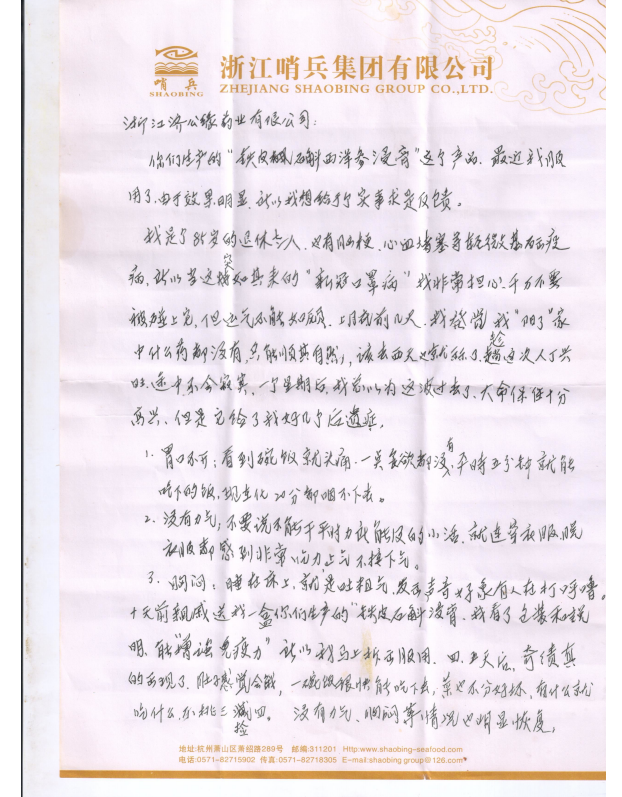 哨兵
SHAOBING
浙江哨兵集团有限公司
ZHEJIANG SHAOBING GROUP CO.,LTD.
浙江济公缘药业有限公司:
你们生产的“铁皮枫石斛西洋参浸膏”这个产品.最近我服
用了,由于效果明显,所以我想给予实事求是反馈。
我是个85岁的退休老人,也有脑梗、心血堵塞等
病,所以当这突如其来的“新冠口罩病”我非常担心,千万不要
被碰上它,但运气不能如愿,上月前几天,我感觉我“阳了”家
中什么药都没有,只能顺其自然,该去西天也就算了,趁这次人丁兴
旺,途中不会寂寞,一个星期后,我总以为这波过去了,大命保住十分
高兴,但是它给了我好几个后遗症,
1. 胃口不开;看到碗饭就头痛,一点食欲都没有,平时五分钟就能
吃下的饭,现在化20分都咽不下去。
2. 没有力气;不要说不能干平时力所能及的小活,就连穿衣服,脱
衣服都感到非常吃力,上气不接下气。
3. 胸闷:睡在床上,就是吐粗气,发出声音好象有人在打呼噜。
十天前亲戚送我一盒你们生产的“铁皮石斛浸膏,我看了包装和说
明,能“增强免疫力”所以我马上拆开服用.四、五天后,奇绩真
的出现了,肚子感觉会饿,一碗饭很快能吃下去,菜也不分好坏,有什么就
吃什么,不挑三减四。没有力气、胸闷等情况也明显恢复,
捡
地址:杭州萧山区萧绍路289号 邮编:311201 Http:www.shaobing-seafood.com
电话:0571-82715902 传真:0571-82718305 E-mail:shaobinggroup@126.com